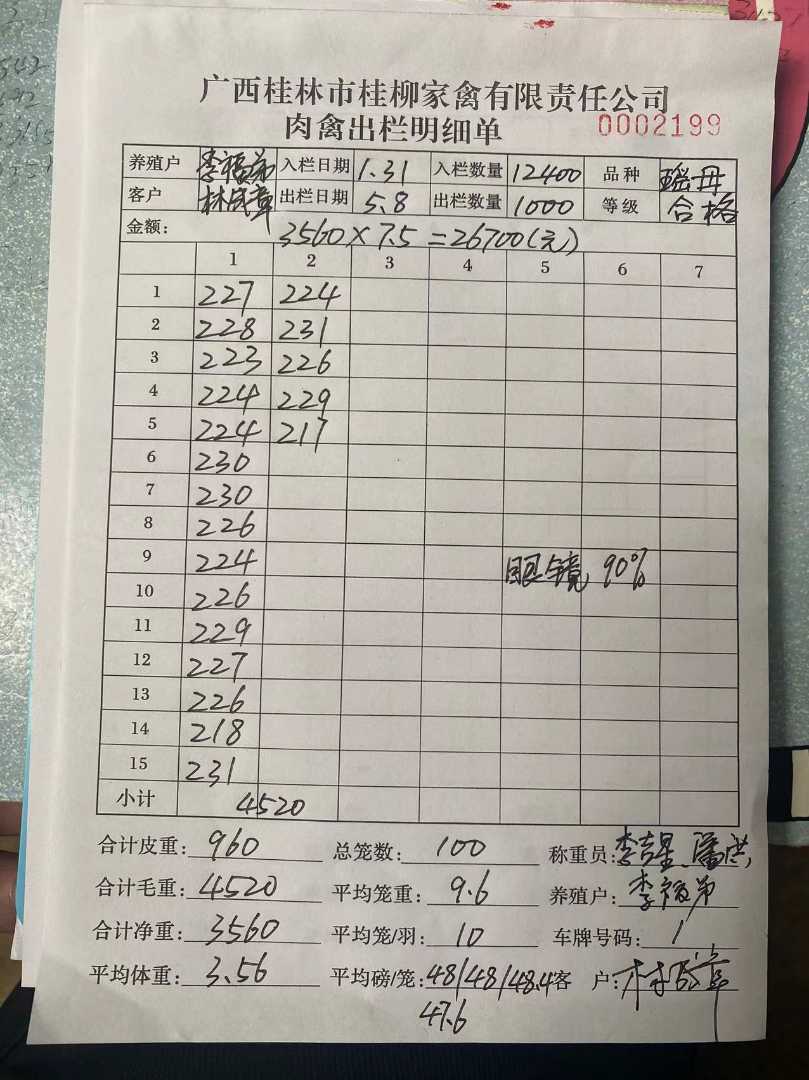 广西桂林市桂柳家禽有限责任公司
肉禽出栏明细单 0002199
养殖户 李福弟 入栏日期 1.31 入栏数量 12400 品种 瑶丹
客户 林成章 出栏日期 5.8 出栏数量 1000 等级 合格
金额: 3560×7.5=26700(元)
1 2 3 4 5 6 7
1 227 224
2 228 231
3 223 226
4 224 229
5 224 217
6 230
7 230
8 226
9 224 眼镜 90%
10 226
11 229
12 227
13 226
14 218
15 231
小计 4520
合计皮重: 960 总笼数: 100 称重员: 李吉星、潘洪
合计毛重: 4520 平均笼重: 9.6 养殖户: 李福弟
合计净重: 3560 平均笼/羽: 10 车牌号码: 1
平均体重: 3.56 平均磅/笼: 48/48/48.4 客 户: 林成章
47.6